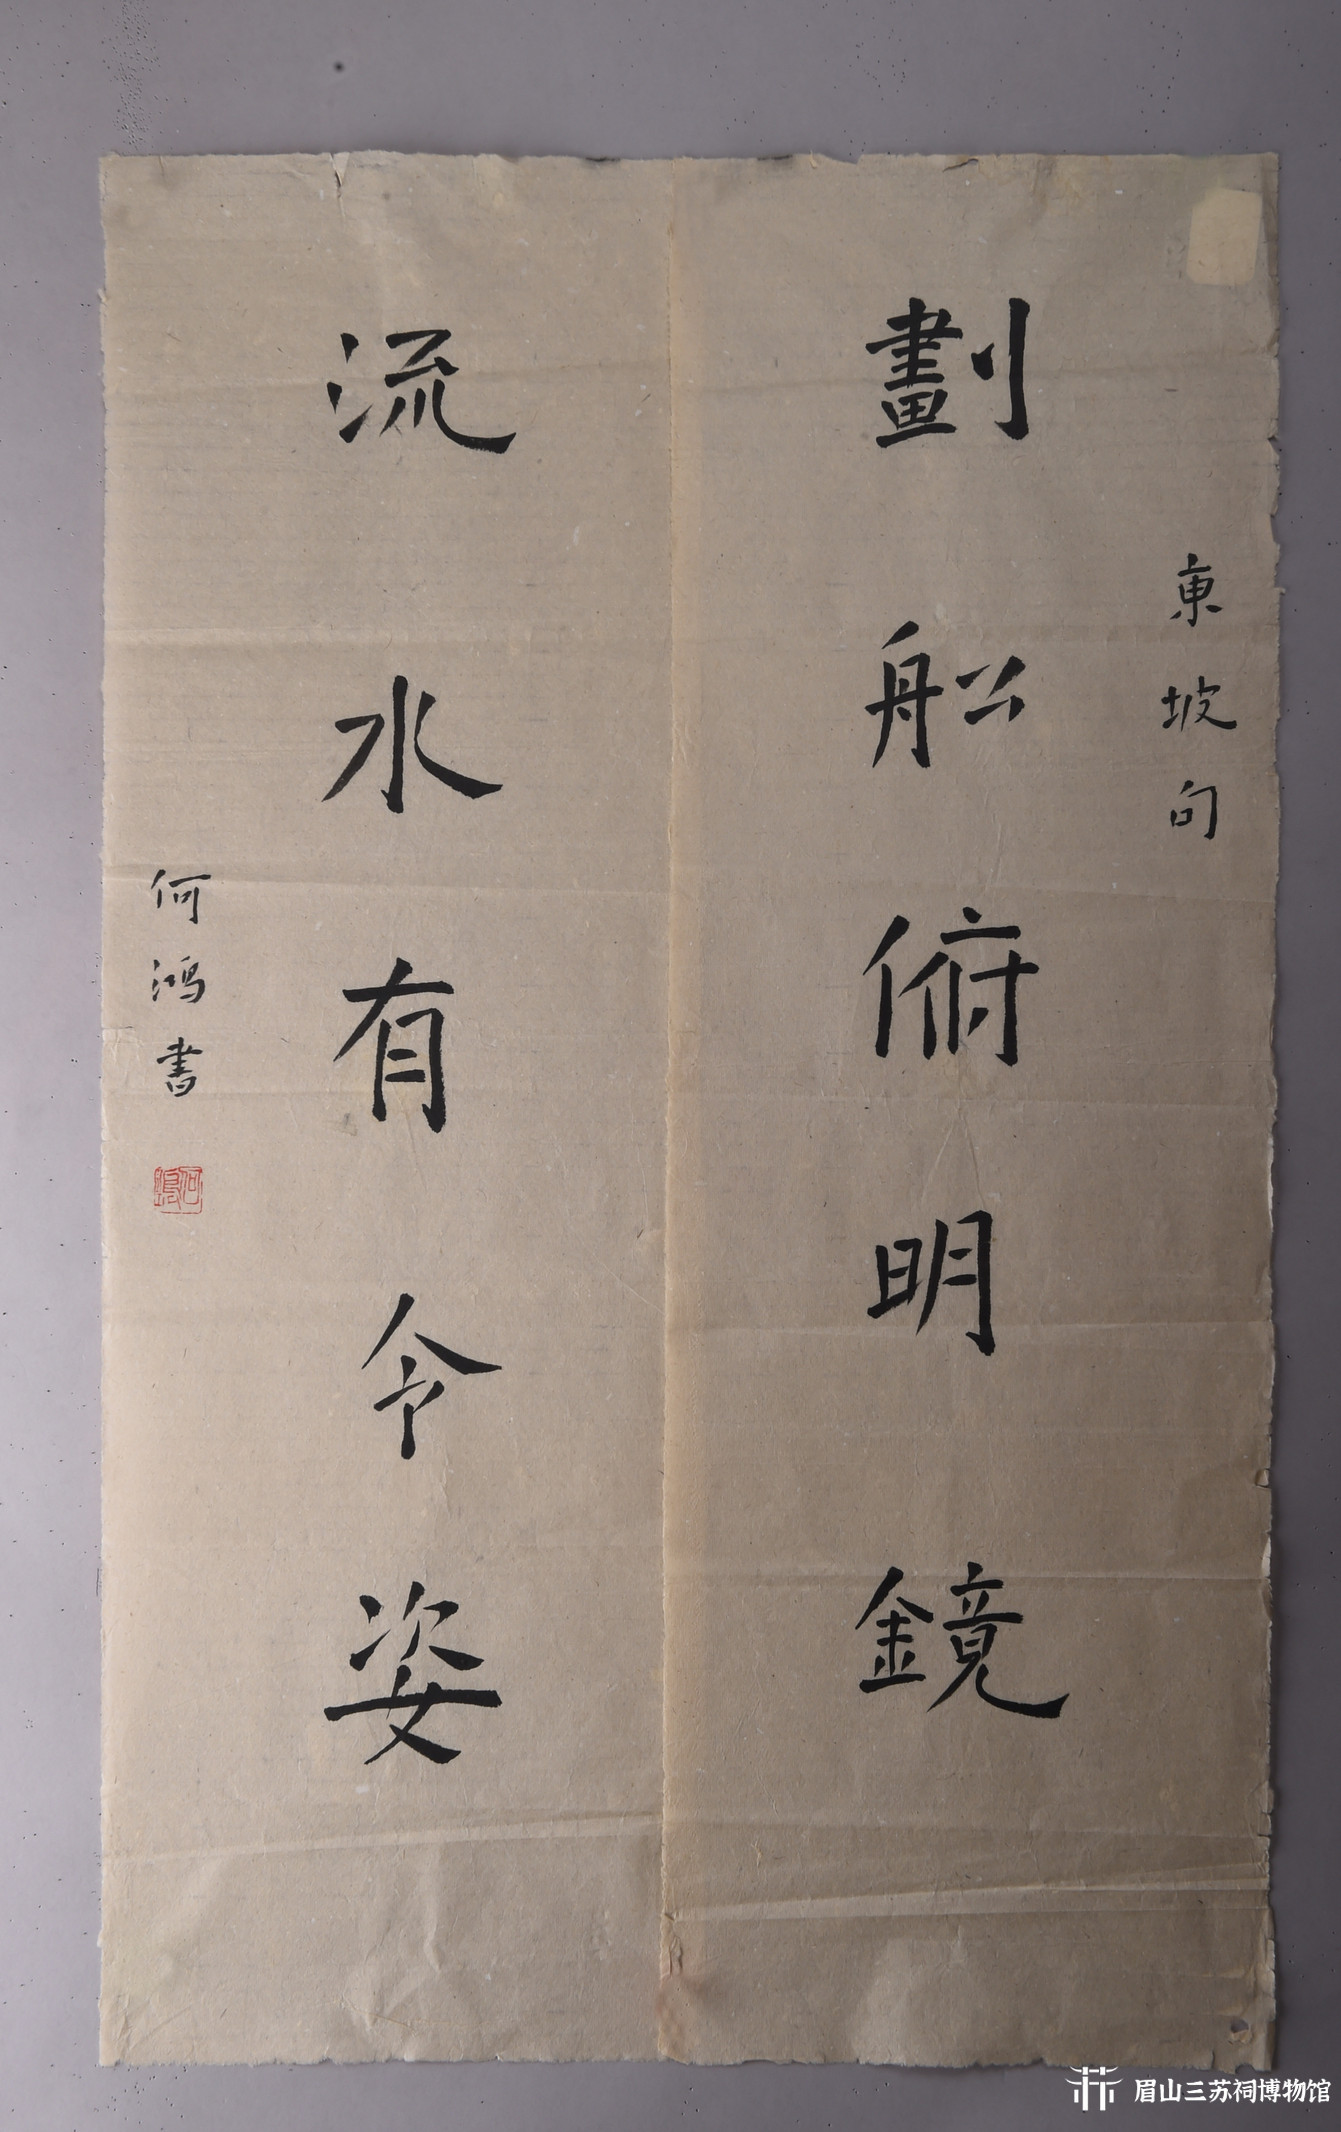 東坡句
劃船俯明鏡
流水有令姿
何鴻書
何鴻
眉山三苏祠博物馆